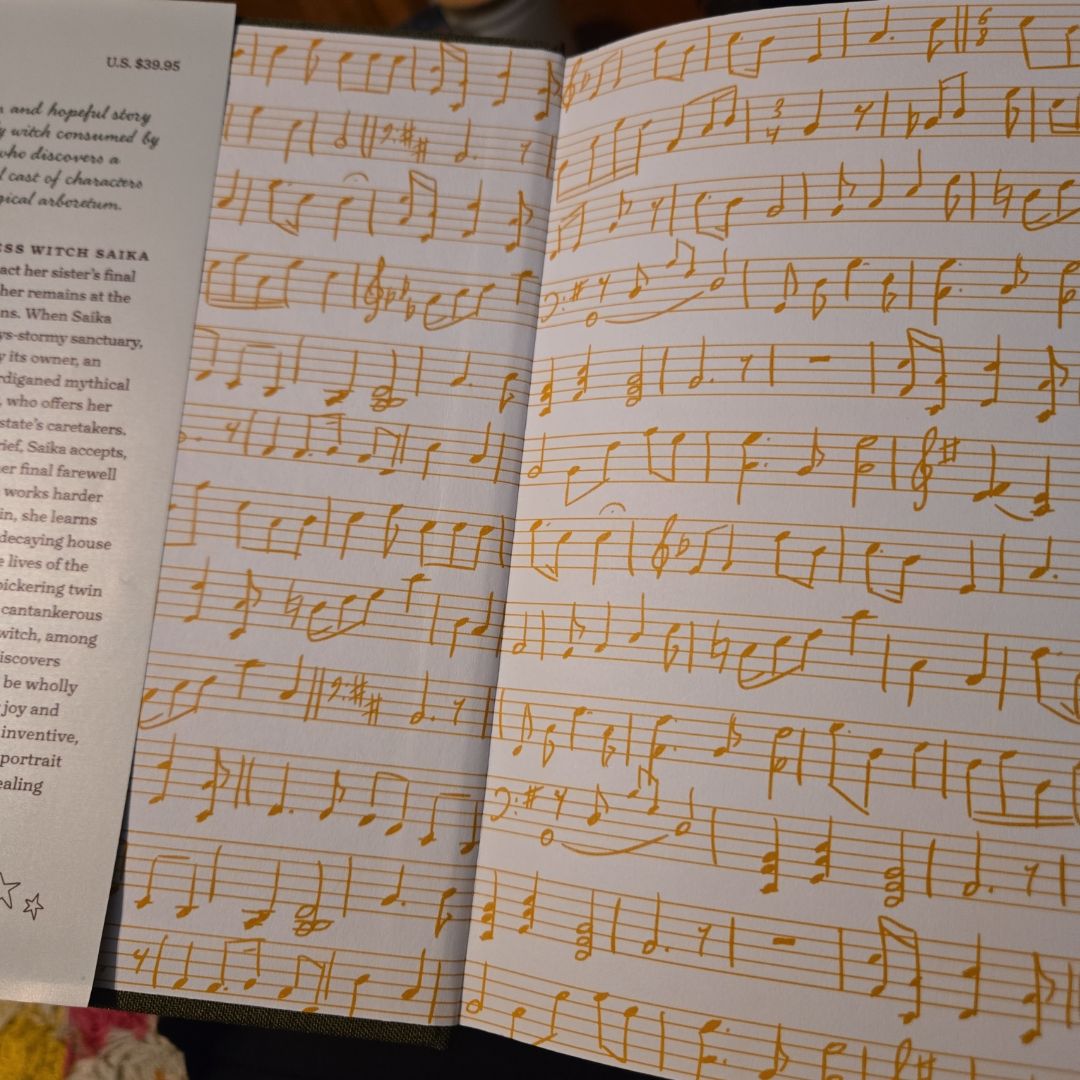 U.S. $39.95
and hopeful story
witch consumed by
who discovers a
cast of characters
arboretum.
WITCH SAIKA
act her sister's final
her remains at the
When Saika
sanctuary,
its owner, an
mythical
who offers her
caretakers.
Saika accepts,
her final farewell
works harder
in, she learns
decaying house
lives of the
bickering twin
cantankerous
witch, among
discovers
be wholly
joy and
inventive,
portrait
6
8
3
4